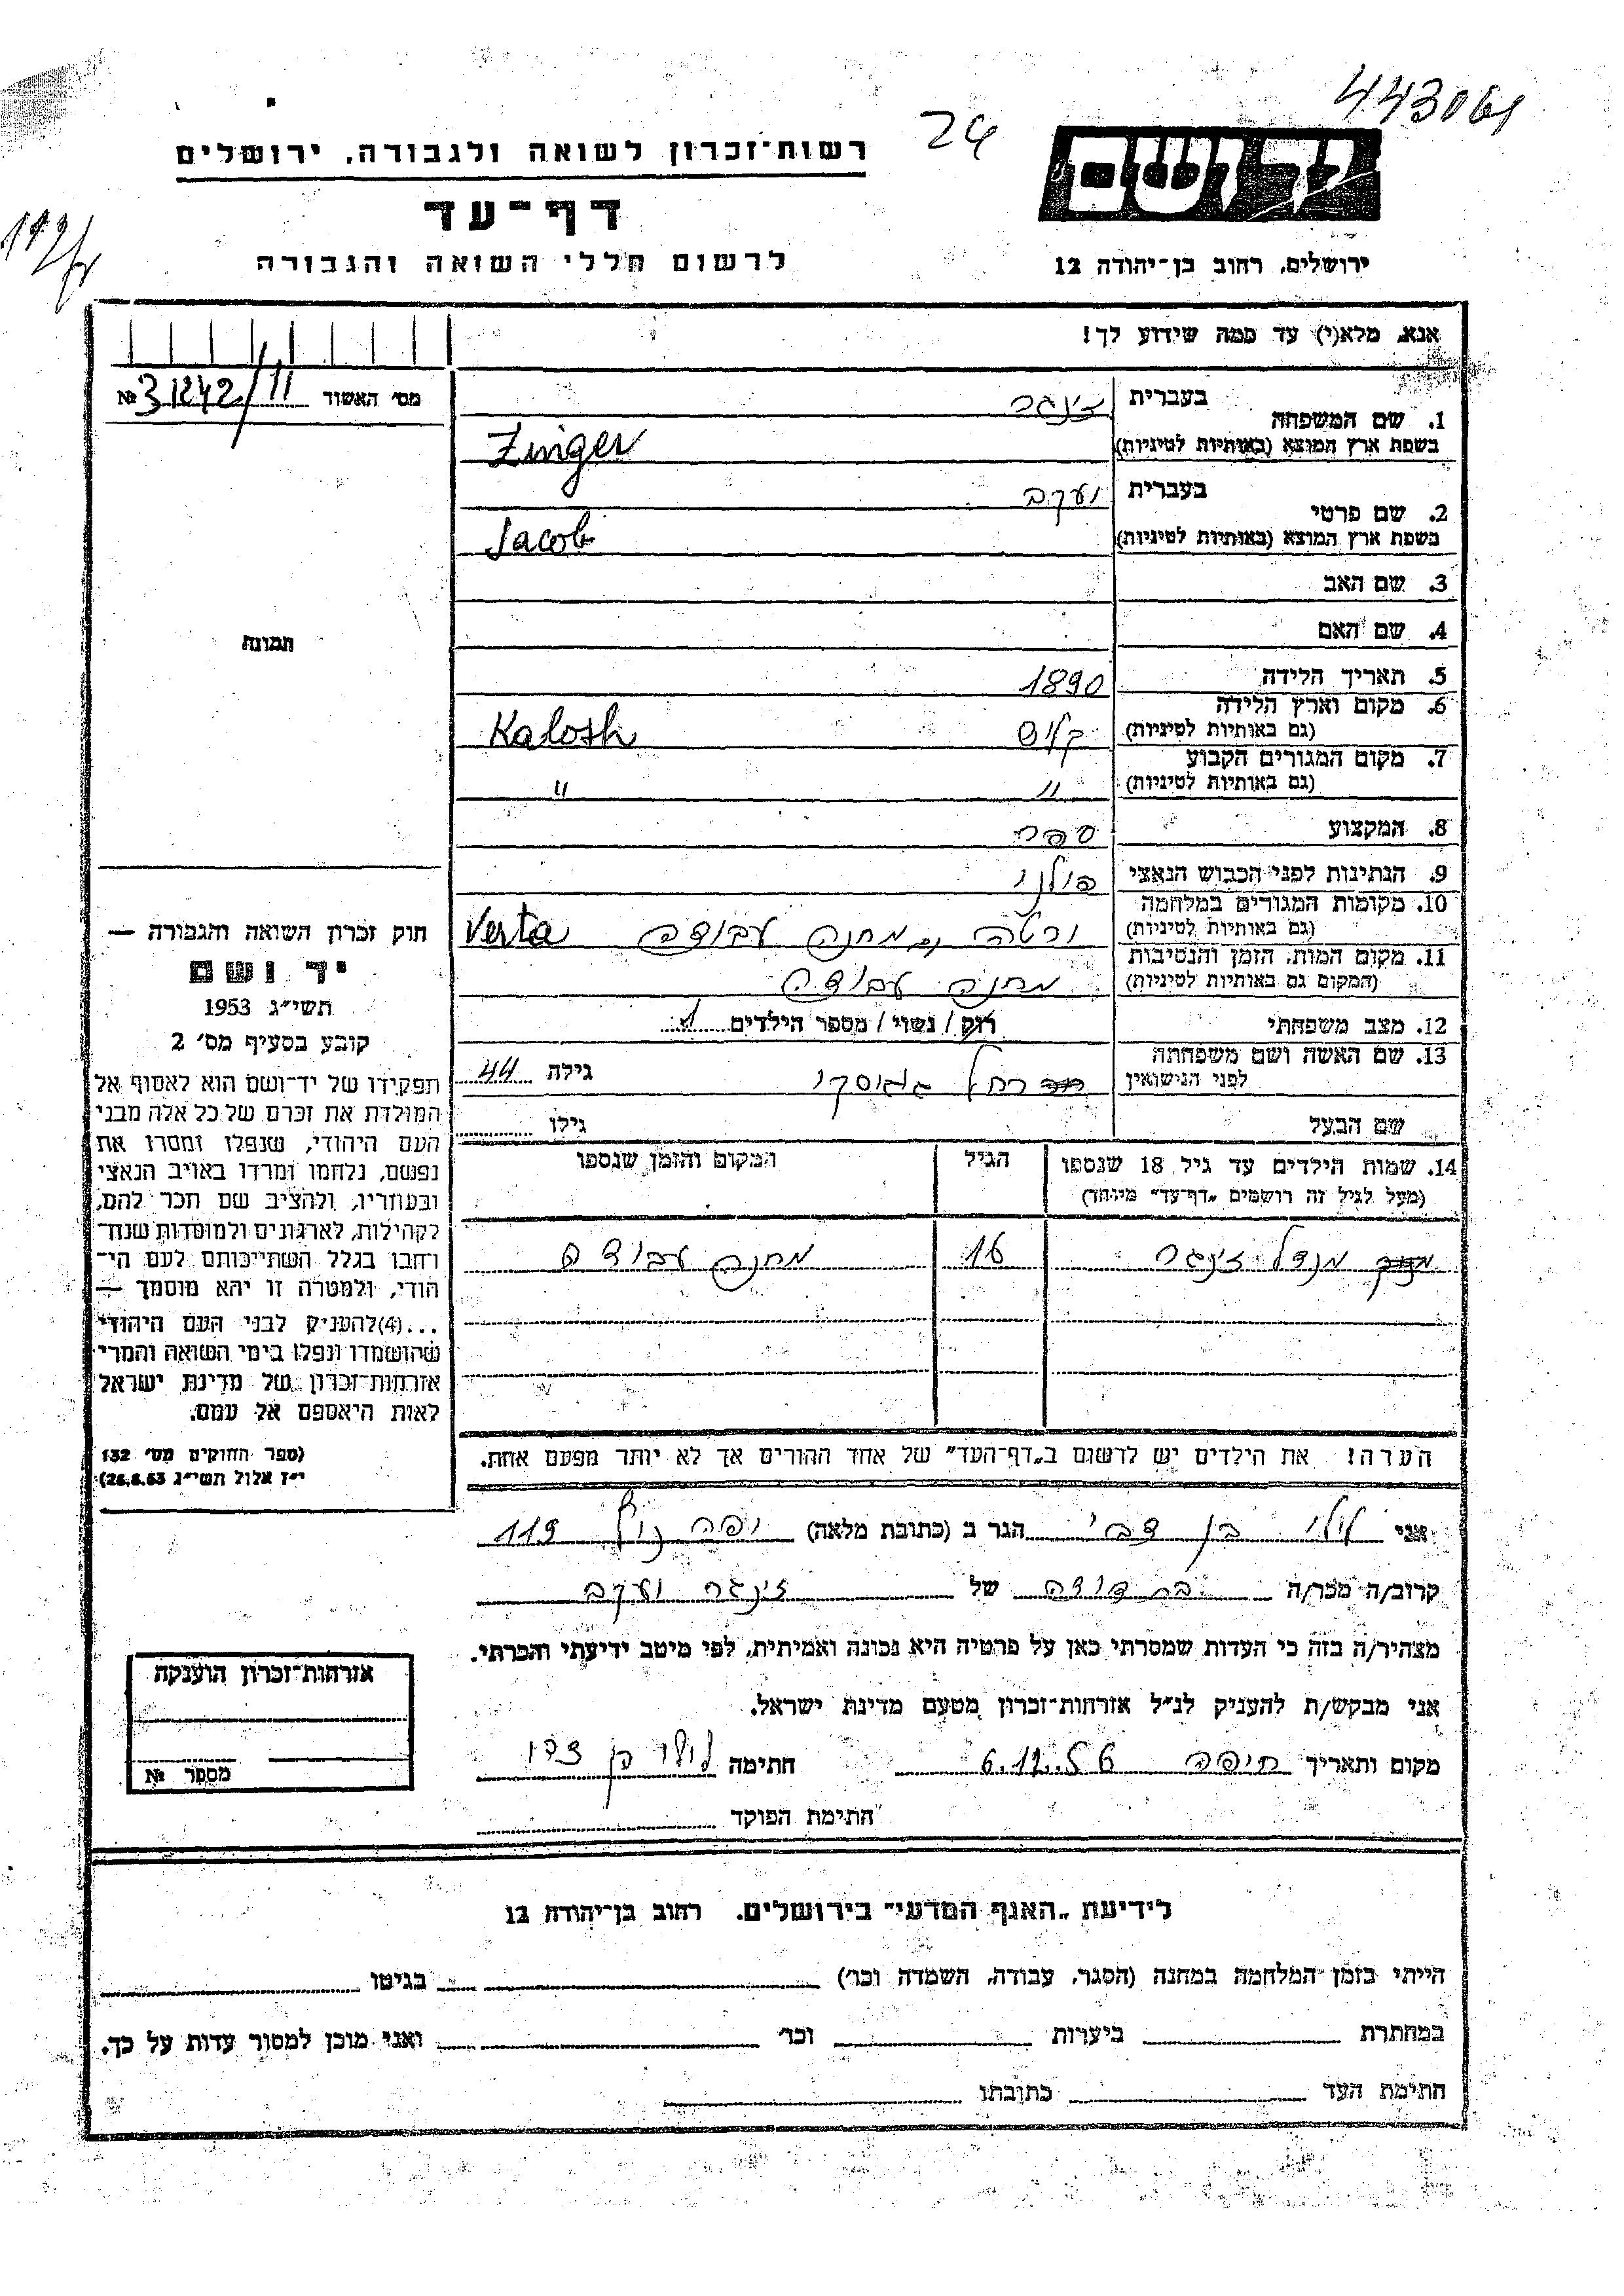 443061
24
רשות־זכרון לשואה ולגבורה, ירושלים
דף־עד
לרשום חללי השואה והגבורה
ירושלים, רחוב בן־יהודה 12
אנא, מלא(י) עד כמה שידוע לך!
מס׳ האשור № 31242/11
1. שם המשפחה בעברית זינגר
בשפת ארץ המוצא (באותיות לטיניות) Zinger
2. שם פרטי בעברית יעקב
בשפת ארץ המוצא (באותיות לטיניות) Jacob
3. שם האב
4. שם האם
תמונה
5. תאריך הלידה 1890
6. מקום וארץ הלידה (גם באותיות לטיניות) קלוש Kalosh
7. מקום המגורים הקבוע (גם באותיות לטיניות) " "
8. המקצוע ספר
9. הנתינות לפני הכבוש הנאצי פולני
10. מקומות המגורים במלחמה (גם באותיות לטיניות) ורטה מחנה עבודה Verta
11. מקום המות, הזמן והנסיבות (המקום גם באותיות לטיניות) מחנה עבודה
12. מצב משפחתי רוק / נשוי / מספר הילדים 1
13. שם האשה ושם משפחתה לפני הנישואין רחל גילה 44
שם הבעל גילו
14. שמות הילדים עד גיל 18 שנספו הגיל המקום והזמן שנספו
(מעל לגיל זה רושמים „דף־עד" מיוחד)
מנדל זינגר 16 מחנה עבודה
הערה! את הילדים יש לרשום ב„דף־העד" של אחד ההורים אך לא יותר מפעם אחת.
חוק זכרון השואה והגבורה —
יד ושם
תשי״ג 1953
קובע בסעיף מס׳ 2
תפקידו של יד־ושם הוא לאסוף אל
המולדת את זכרם של כל אלה מבני
העם היהודי, שנפלו ומסרו את
נפשם, נלחמו ומרדו באויב הנאצי
ובעוזריו, ולהציב שם וזכר להם,
לקהילות, לארגונים ולמוסדות שנח־
רחבו בגלל השתייכותם לעם הי־
הודי, ולמטרה זו יהא מוסמך —
...(4)להעניק לבני העם היהודי
שהושמדו ונפלו בימי השואה והמרי
אזרחות־זכרון של מדינת ישראל
לאות היאספם אל עמם.
(ספר החוקים מס׳ 132
י״ז אלול תשי״ג 28.8.53)
אני לולו בן צבי הגר ב (כתובת מלאה) יפה נוף 119
קרוב/ה מכר/ה בת דודה של זינגר יעקב
מצהיר/ה בזה כי העדות שמסרתי כאן על פרטיה היא נכונה ואמיתית, לפי מיטב ידיעתי והכרתי.
אני מבקש/ת להעניק לנ״ל אזרחות־זכרון מטעם מדינת ישראל.
מקום ותאריך חיפה 6.12.56 חתימה לולו בן צבי
חתימת הפוקד
אזרחות־זכרון הוענקה
מספר №
לידיעת „האגף המדעי" בירושלים, רחוב בן־יהודה 12
הייתי בזמן המלחמה במחנה (הסגר, עבודה, השמדה וכר׳) בגיטו
במחתרת ביערות וכר׳ ואני מוכן למסור עדות על כך.
חתימת העד כתובתו